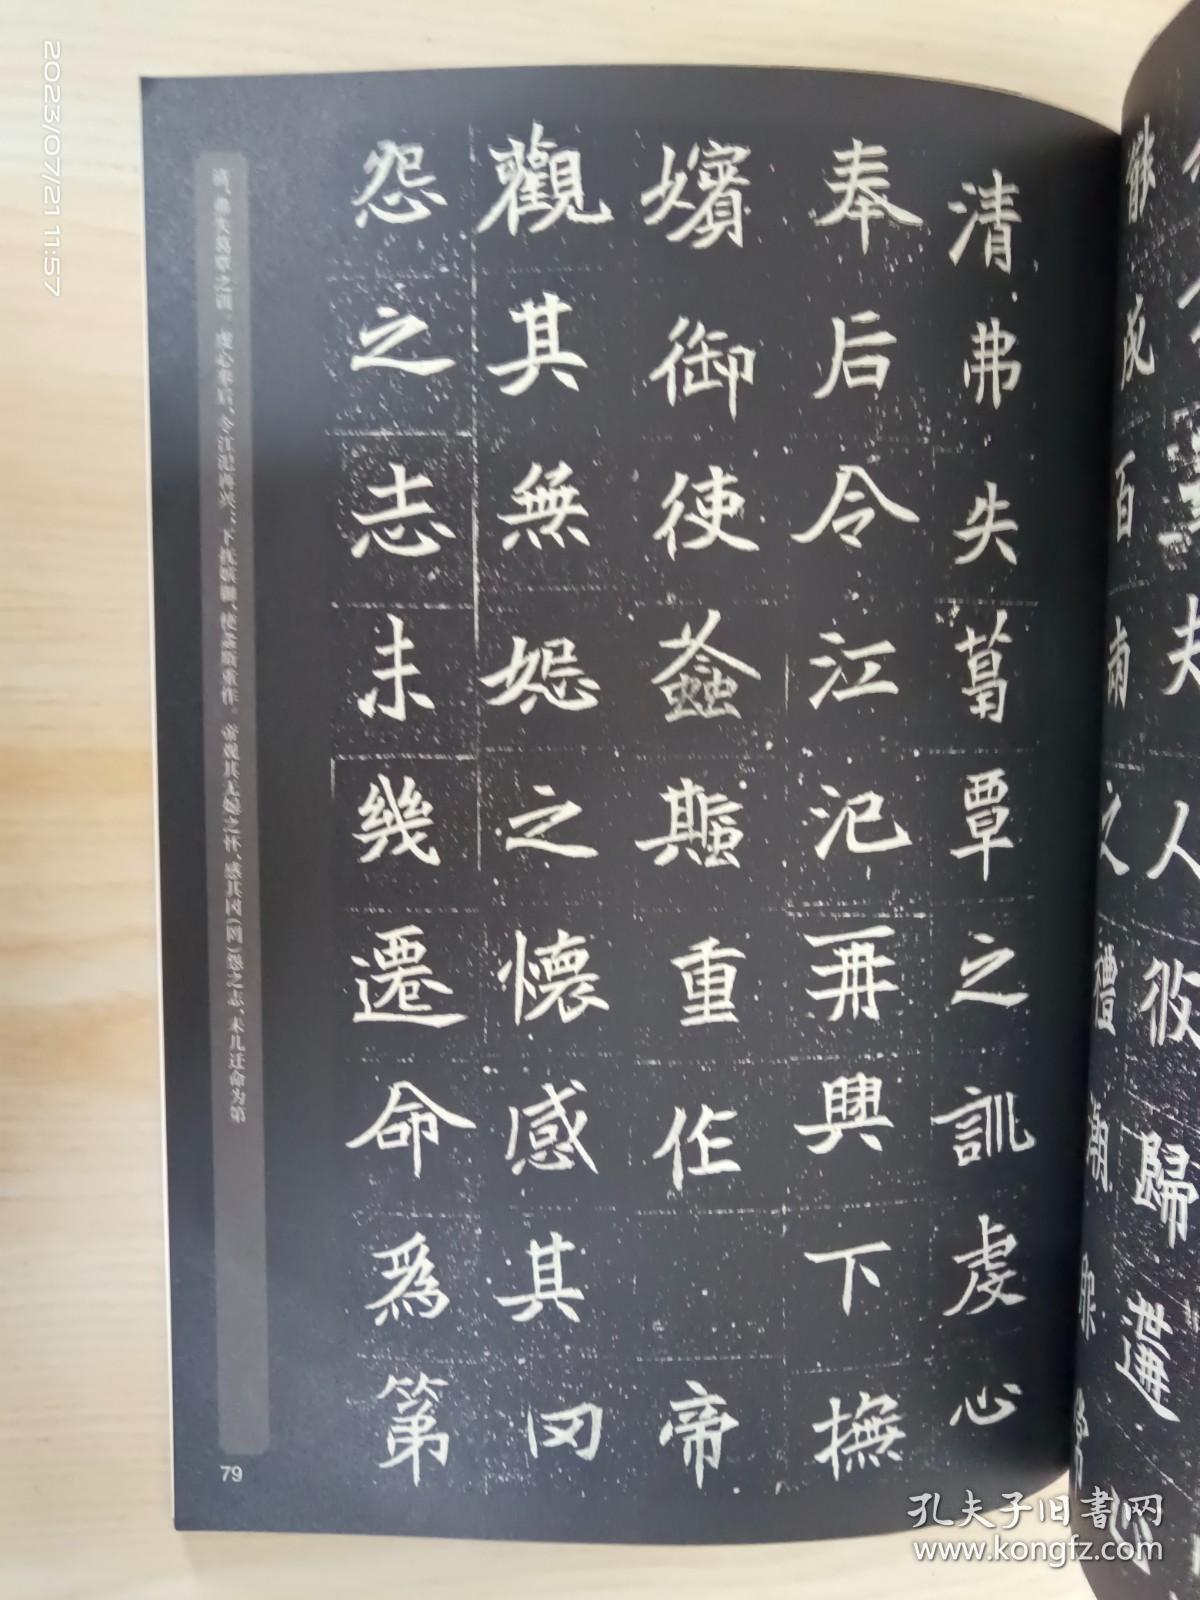 清弗失葛覃之訓虔心
奉后令江汜再興下撫
嬪御使螽斯重作 帝
觀其無㛐之懷感其罔
怨之志未幾遷命爲第
弗失葛覃之训 虔心奉后,令江汜再兴,下抚嫔御,使螽斯重作 帝观其无妒之怀,感其冈(罔)怨之志,未几迁命为第
79
2023/07/21 11:57
成百
夫人
之
歸
孔夫子旧书网
www.kongfz.com